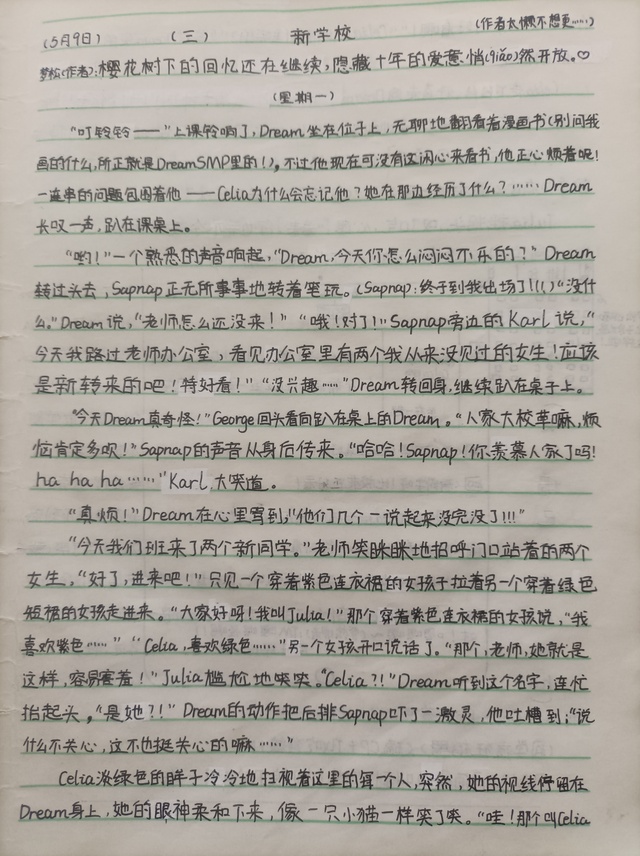 (作者太懒不想更……)
(5月9日) (三) 新学校
梦松(作者):樱花树下的回忆还在继续,隐藏十年的爱意悄(qiǎo)然开放。♡
(星期一)
“叮铃铃——”上课铃响了,Dream坐在位子上,无聊地翻看着漫画书(别问我
画的什么,所正就是DreamSMP里的!)。不过他现在可没有这闲心来看书,他正心烦着呢!
一连串的问题包围着他——Celia为什么会忘记他?她在那边经历了什么?……Dream
长叹一声,趴在课桌上。
“哟!”一个熟悉的声音响起,“Dream,今天你怎么闷闷不乐的?”Dream
转过头去,Sapnap正无所事事地转着笔玩。(Sapnap:终于到我出场了!(()“没什
么。”Dream说,“老师怎么还没来!”“哦!对了!”Sapnap旁边的Karl说,“
今天我路过老师办公室,看见办公室里有两个我从来没见过的女生!应该
是新转来的吧!特好看!”“没兴趣……”Dream转回身,继续趴在桌子上。
“今天Dream真奇怪!”George回头看向趴在桌上的Dream。“人家大校草嘛,烦
恼肯定多呗!”Sapnap的声音从身后传来。“哈哈!Sapnap!你羡慕人家了吗!
ha ha ha……”Karl大笑道。
“真烦!”Dream在心里骂到,“他们几个一说起来没完没了!!!”
“今天我们班来了两个新同学。”老师笑眯眯地招呼门口站着的两个
女生。“好了,进来吧!”只见一个穿着紫色连衣裙的女孩子拉着另一个穿着绿色
短裙的女孩走进来。“大家好呀!我叫Julia!”那个穿着紫色连衣裙的女孩说,“我
喜欢紫色……”“Celia,喜欢绿色……”另一个女孩开口说话了。“那个,老师,她就是
这样,容易害羞!”Julia尴尬地笑笑。“Celia?!”Dream听到这个名字,连忙
抬起头。“是她?!”Dream的动作把后排Sapnap吓了一激灵,他吐槽到:“说
什么不关心,这不也挺关心的嘛……”
Celia淡绿色的眸子冷冷地扫视着这里的每一个人,突然,她的视线停留在
Dream身上,她的眼神柔和下来,像一只小猫一样笑了笑。“哇!那个叫Celia